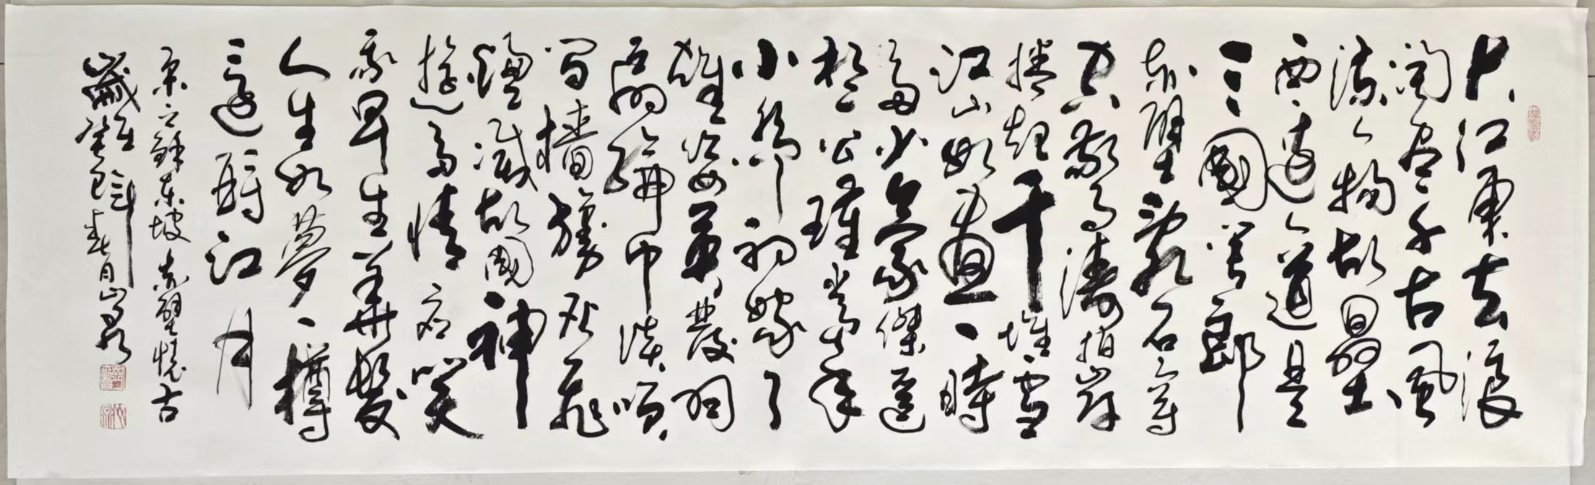 大江東去浪
淘盡千古風
流人物故壘
西邊人道是
三國周郎
赤壁亂石穿
空驚濤拍岸
捲起千堆雪
江山如畫一時
多少豪傑遙
想公瑾當年
小喬初嫁了
雄姿英發羽
扇綸巾談笑
間檣櫓灰飛
煙滅故國神
遊多情應笑
我早生華髮
人生如夢一樽
還酹江月
東坡赤壁懷古
歲在乙巳春月